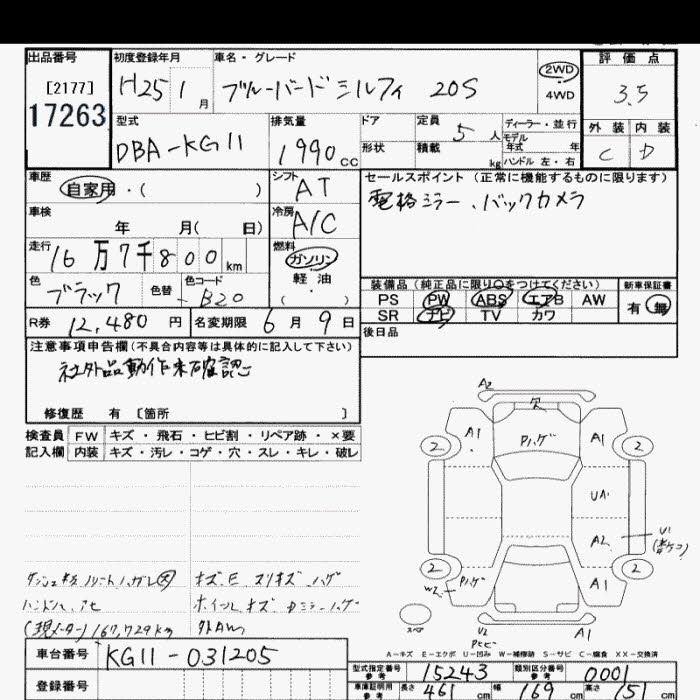 出品番号 初度登録年月 車名・グレード 評価点
[2177] H25 1月 ブルーバードシルフィ 20S 2WD 4WD 3.5
17263
型式 排気量 ドア 定員 5人 ディーラー・並行 外装 内装
DBA-KG11 1990cc 形状 積載 kg モデル年式 年 ハンドル 左・右 C D
車歴 自家用・( ) シフト AT セールスポイント (正常に機能するものに限ります)
車検 年 月( 日) 冷房 A/C 電格ミラー、バックカメラ
走行 16万7千800km 燃料 ガソリン 軽油 ( )
色 ブラック 色替 色コード B20
装備品 (純正品に限り○をつけてください) 新車保証書
PS PW ABS エアB AW 有 無
SR ナビ TV カワ
R券 12,480円 名変期限 6月9日 後日品
注意事項申告欄 (不具合内容等は具体的に記入して下さい)
社外品動作未確認
修復歴 有 [箇所 ]
検査員 FW キズ・飛石・ヒビ割・リペア跡・×要
記入欄 内装 キズ・汚レ・コゲ・穴・スレ・キレ・破レ
A2
欠
A1 Pハゲ A1
2 2
UA'
A2 U1
2 2
W2 Pハゲ A1
スペア
U2 A1
ハンドル
キズE スリキズ ハゲ
ホイルキズ Dミラーハゲ
(現メーター) 167,729km 外AW
A-キズ E-エクボ U-凹み W-補修跡 S-サビ C-腐食 XX-交換済
車台番号 KG11-031205
登録番号
型式指定番号 参考 15243 類別区分番号 参考 0001
車庫証明用 参考 長さ 461cm 幅 169cm 高さ 151cm